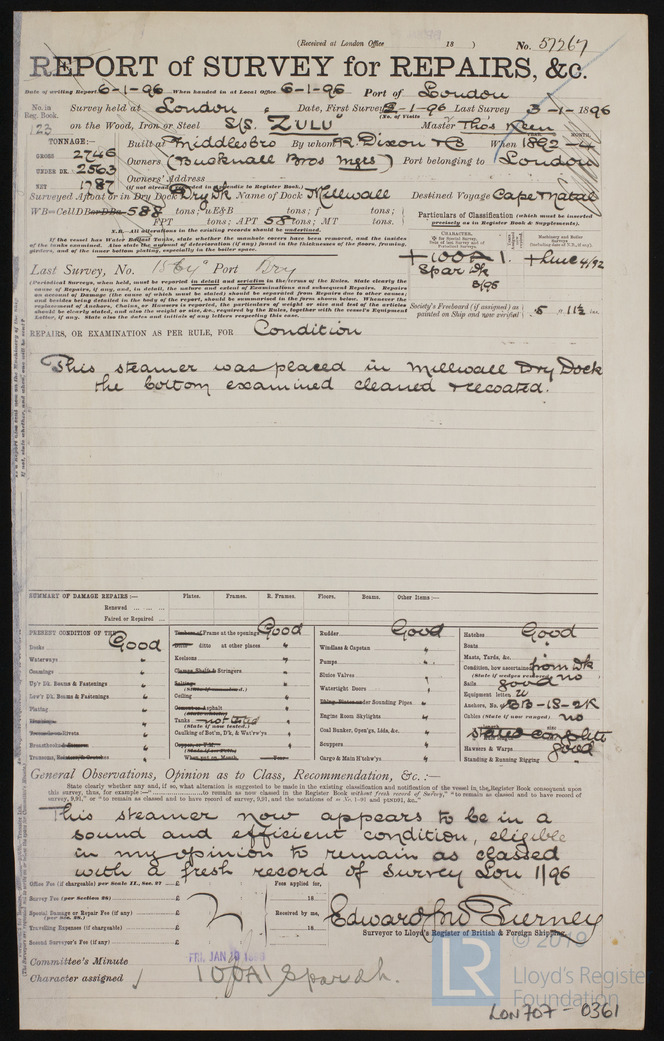 (Received at London Office 18 ) No. 57267
REPORT of SURVEY for REPAIRS, &c.
Date of writing Report 6-1-96 When handed in at Local Office 6-1-96 Port of London
No. in Reg. Book. Survey held at London Date, First Survey 2-1-96 Last Survey 3-1-1896
(No. of Visits
123 on the Wood, Iron or Steel S/S. "ZULU" Master Thos Keen
TONNAGE:— Built at Middlesbro By whom R. Dixon & Co When 1892-4
GROSS 2746
UNDER DK. 2563 Owners (Bucknall Bros Mgrs) Port belonging to London
NET 1787 Owners' Address
(if not already recorded in Appendix to Register Book.)
Surveyed Afloat or in Dry Dock Dry Dk Name of Dock Millwall Destined Voyage Cape Natal
WB=CellDBorDBa 588 tons; uE&B tons; f tons;
FPT tons; APT 58 tons; MT tons.
N.B.—All alterations in the existing records should be underlined.
If the vessel has Water Ballast Tanks, state whether the manhole covers have been removed, and the insides
of the tanks examined. Also state the amount of deterioration (if any) found in the thicknesses of the floors, framing,
girders, and of the inner bottom plating, especially in the boiler space.
Particulars of Classification (which must be inserted
precisely as in Register Book & Supplements).
+100A1. +LMC 4/92
Spar Dk
3/95
Last Survey, No. Port Bry
(Periodical Surveys, when held, must be reported in detail and seriatim in the terms of the Rules. State clearly the
cause of Repairs, if any, and, in detail, the nature and extent of Examinations and subsequent Repairs. Repairs
on account of Damage (the cause of which must be stated) should be separated from Repairs due to other causes;
and besides being detailed in the body of the report, should be summarised in the form shown below. Whenever the
replacement of Anchors, Chains, or Hawsers is reported, the particulars of weight and test of the articles
should be clearly stated, and also the weight or size, &c., required by the Rules, together with the vessel's Equipment
Letter, if any. State also the dates and initials of any letters respecting this case.
Society's Freeboard (if assigned) as
painted on Ship and now verified 5 11½ ins.
REPAIRS, OR EXAMINATION AS PER RULE, FOR Condition
This steamer was placed in Millwall Dry Dock
the bottom examined cleaned & recoated.
SUMMARY OF DAMAGE REPAIRS:— Plates. Frames. R. Frames. Floors. Beams. Other Items:—
Renewed ... ... ...
Faired or Repaired ...
PRESENT CONDITION OF THE
Decks Good
Waterways "
Coamings "
Up'r Dk. Beams & Fastenings "
Low'r Dk. Beams & Fastenings "
Plating "
Rivets "
Breasthooks "
Transoms "
Frame at the openings Good
ditto at other places "
Keelsons "
Stringers "
Ceiling "
Cement or Asphalt "
Tanks not tested
(State if now tested.)
Caulking of Bot'm, D'k, & Wat'rw'ys "
When put on, Month Year
Rudder Good
Windlass & Capstan "
Pumps "
Sluice Valves "
Watertight Doors "
under Sounding Pipes "
Engine Room Skylights "
Coal Bunker, Open'gs, Lids, &c. "
Scuppers "
Cargo & Main H'tchw'ys "
Hatches Good
Boats "
Masts, Yards, &c. "
Condition, how ascertained from Dk
(State if wedges removed) no
Sails good
Equipment letter U
Anchors, No. 3B-1S-2K
Cables (State if now ranged) no
stated complete
Hawsers & Warps good
Standing & Running Rigging "
General Observations, Opinion as to Class, Recommendation, &c. :—
State clearly whether any, and if so, what alteration is suggested to be made in the existing classification and notification of the vessel in the Register Book consequent upon
this survey, thus, for example —" to remain as now classed in the Register Book without fresh record of Survey," "to remain as classed and to have record of
survey, 9,91," or "to remain as classed and to have record of survey, 9,91, and the notations of
This steamer now appears to be in a
sound and efficient condition, eligible
in my opinion to remain as classed
with a fresh record of Survey Lon 1/96
Office Fee (if chargeable) per Scale II., Sec. 27 ... £
Survey Fee (per Section 28) £
Special Damage or Repair Fee (if any) £
(per Sec. 28.)
Travelling Expenses (if chargeable) £
Second Surveyor's Fee (if any) £
Fees applied for, 18
Received by me, 18
Edward Jno Tierney
Surveyor to Lloyd's Register of British & Foreign Shipping.
Committee's Minute FRI. JAN 10 1896
Character assigned 100A1 Spar dk.
LR
© 2019
Lloyd's Register
Foundation
LON707-0361